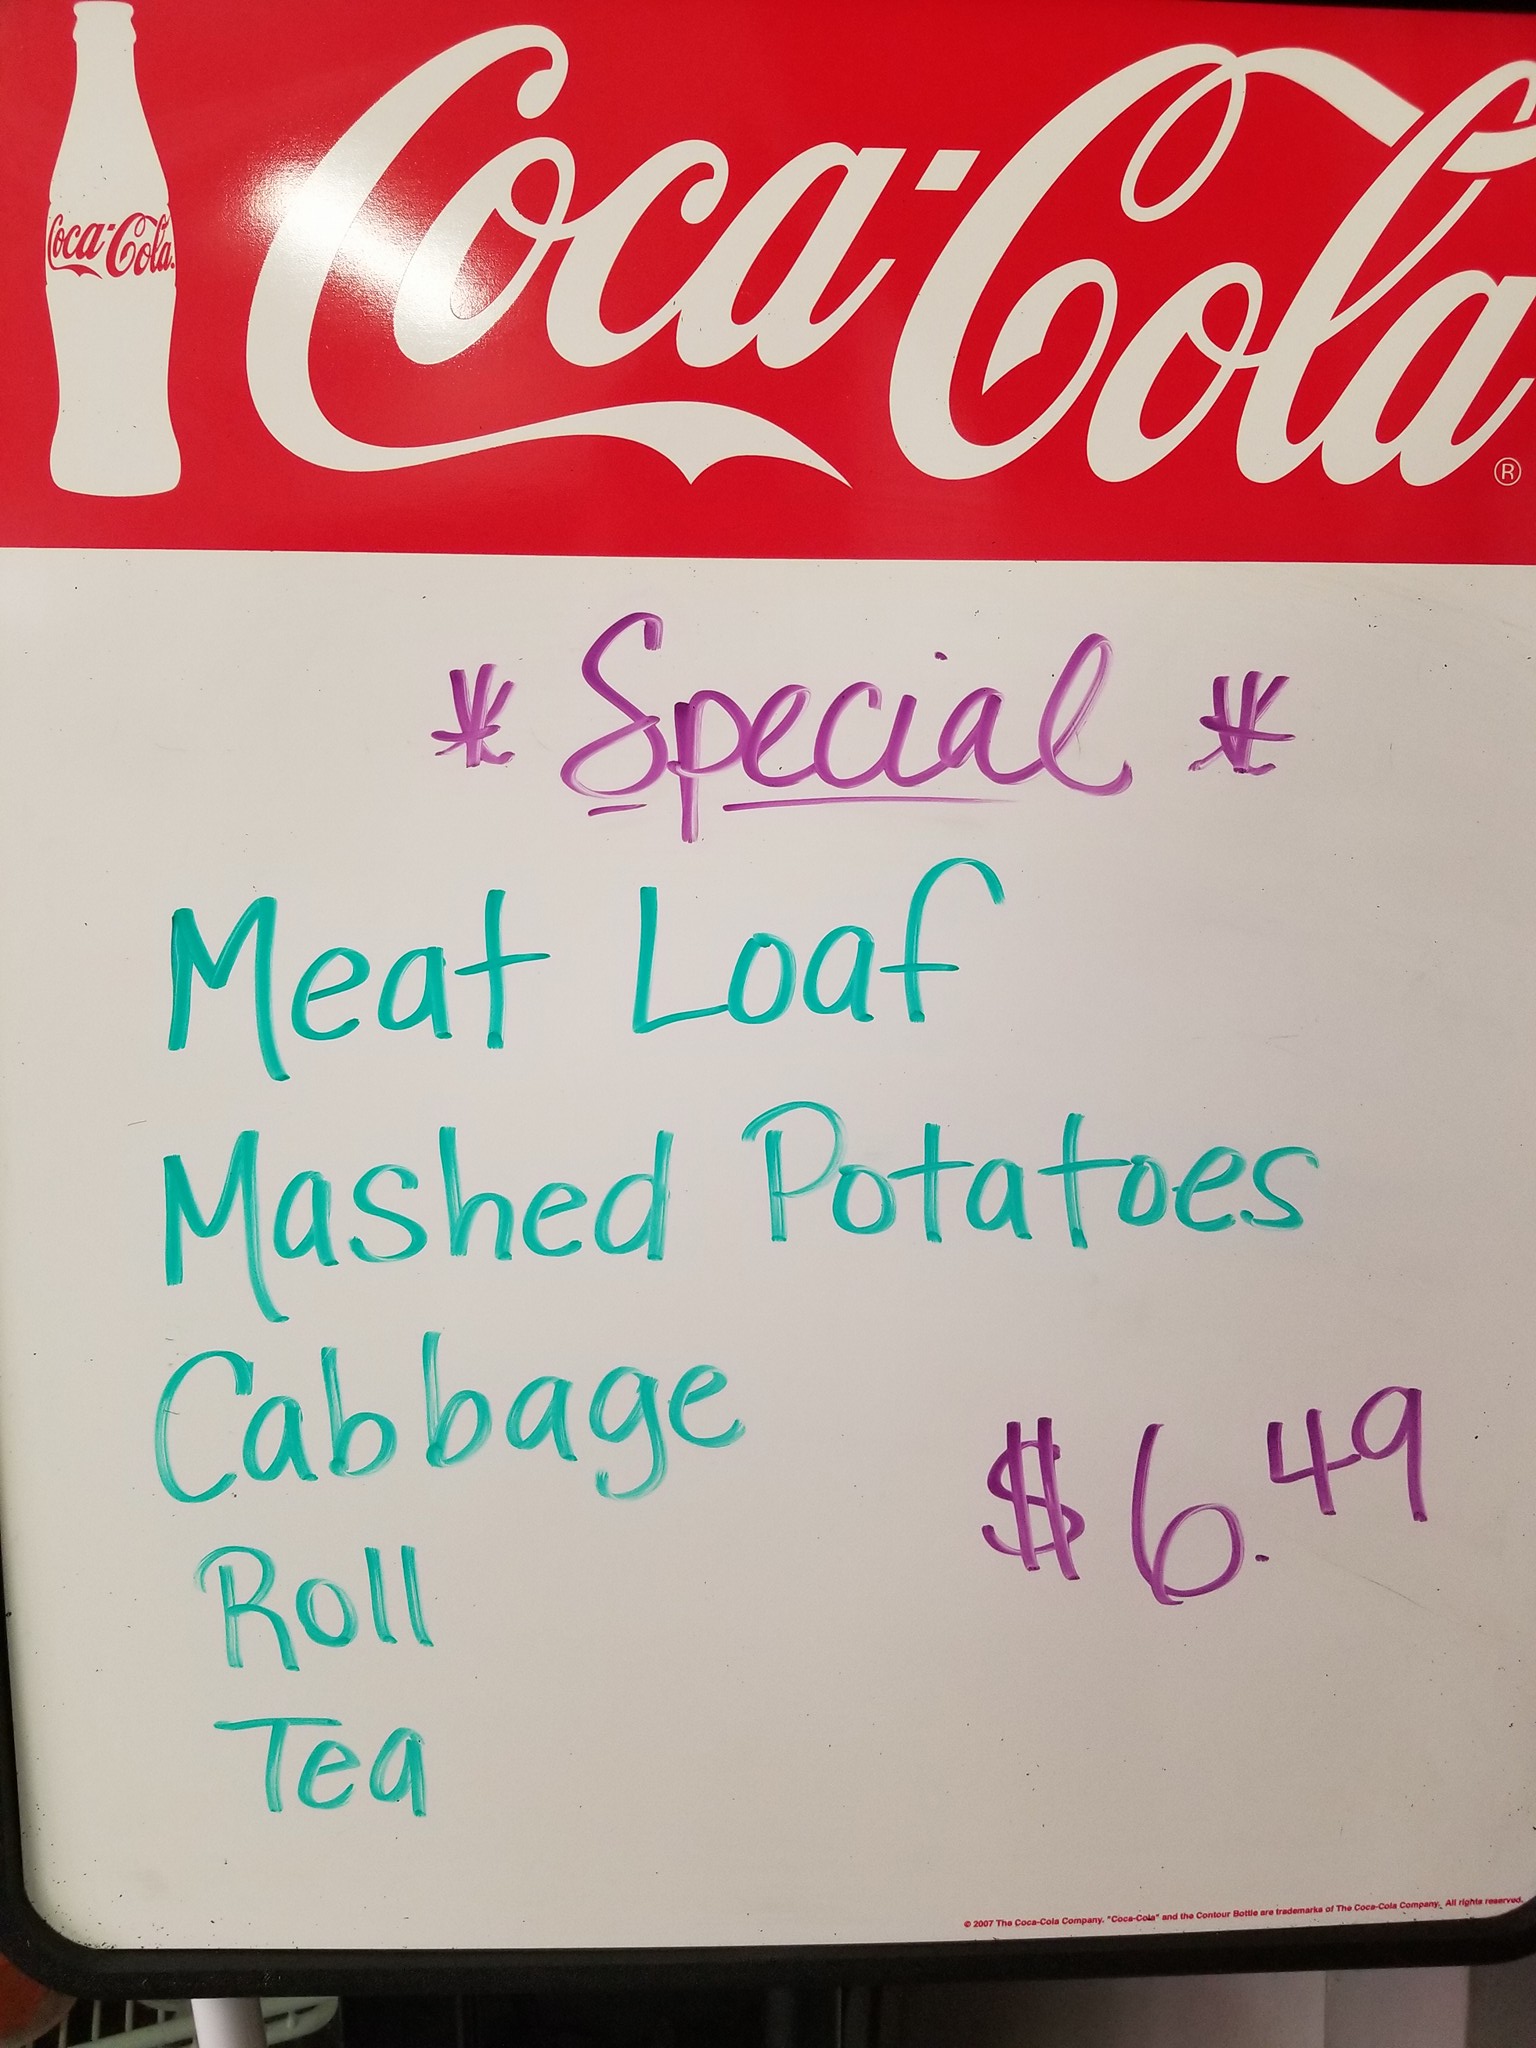 Coca-Cola
Coca-Cola ®
* Special *
Meat Loaf
Mashed Potatoes
Cabbage
$6.49
Roll
Tea
© 2007 The Coca-Cola Company. "Coca-Cola" and the Contour Bottle are trademarks of The Coca-Cola Company. All rights reserved.